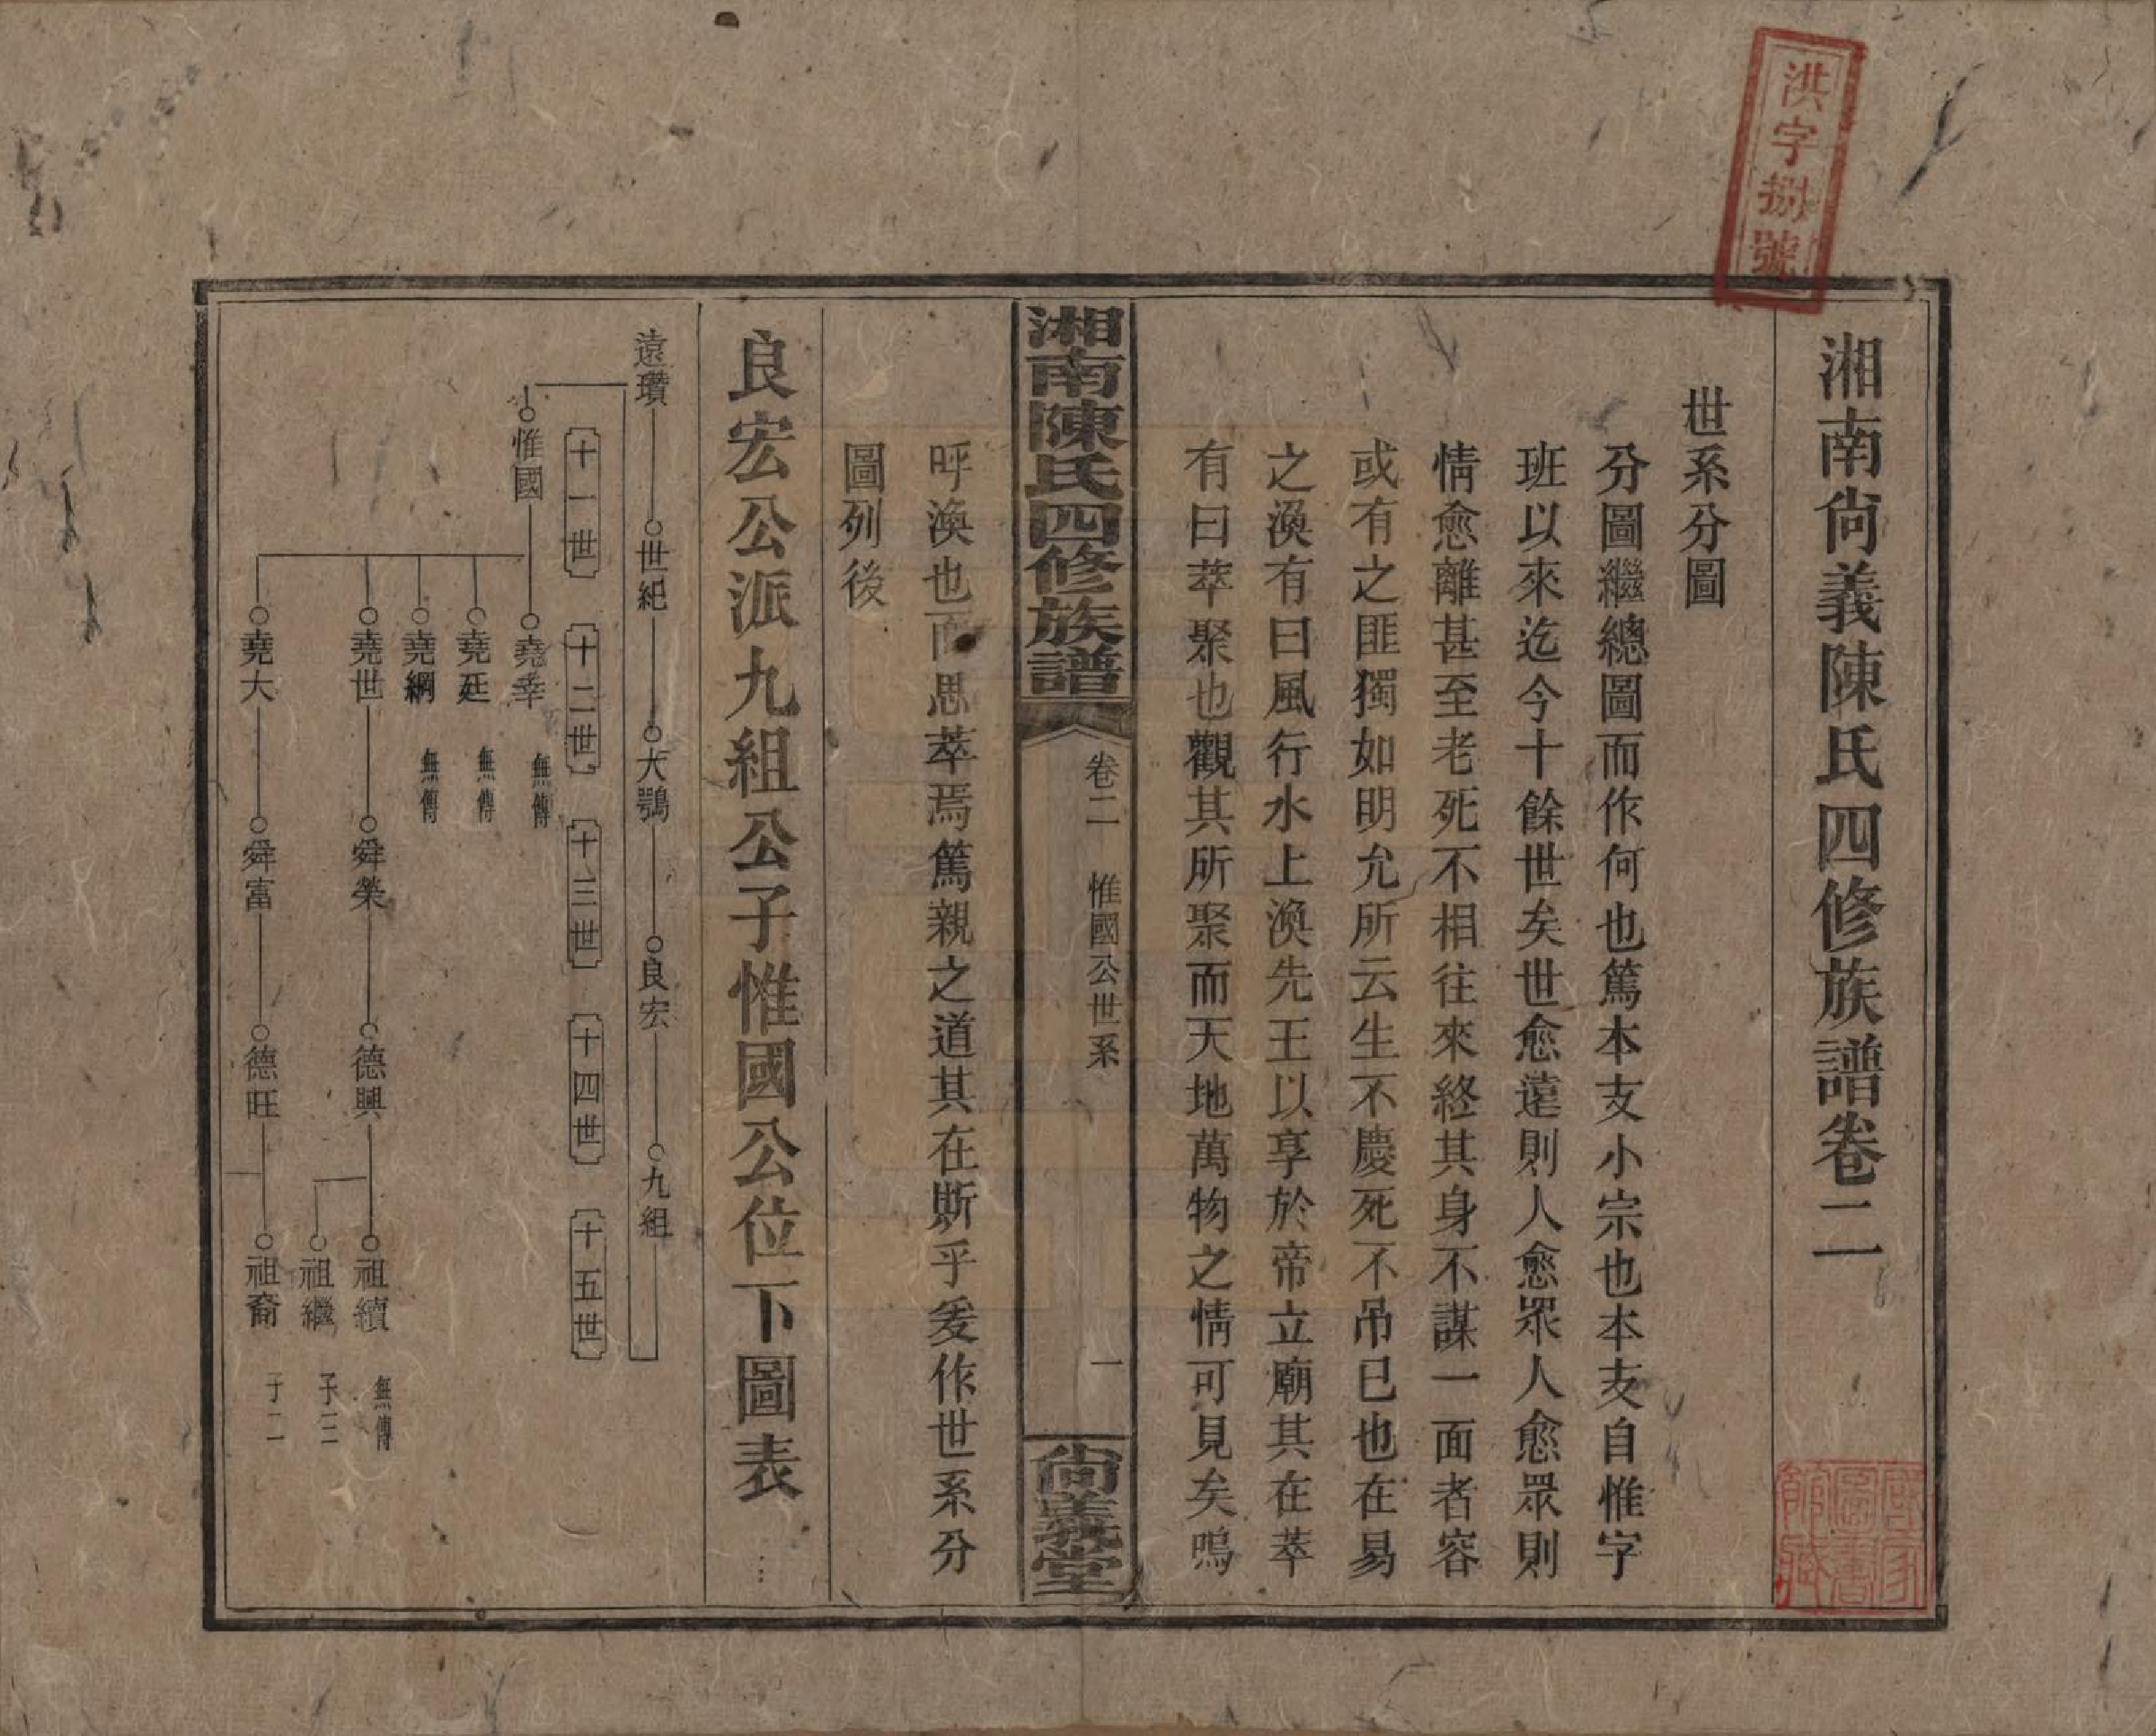 洪字捌號
湘南尙義陳氏四修族譜卷二
國家圖書館藏
世系分圖
分圖繼總圖而作何也篤本支小宗也本支自惟字
班以來迄今十餘世矣世愈遠則人愈眾人愈眾則
情愈離甚至老死不相往來終其身不謀一面者容
或有之匪獨如明允所云生不慶死不吊已也在易
之渙有曰風行水上渙先王以享於帝立廟其在萃
有曰萃聚也觀其所聚而天地萬物之情可見矣嗚
湘南陳氏四修族譜
卷二 惟國公世系 一
尙義堂
呼渙也而思萃焉篤親之道其在斯乎爰作世系分
圖列後
良宏公派九組公子惟國公位下圖表
遠瓚 世紀 大鶚 良宏 九組
十一世 十二世 十三世 十四世 十五世
惟國 堯幸 無傳
堯廷 無傳
堯綱 無傳
堯世 舜榮 德興 祖續 無傳
祖繼 子三
堯大 舜富 德旺 祖裔 子二